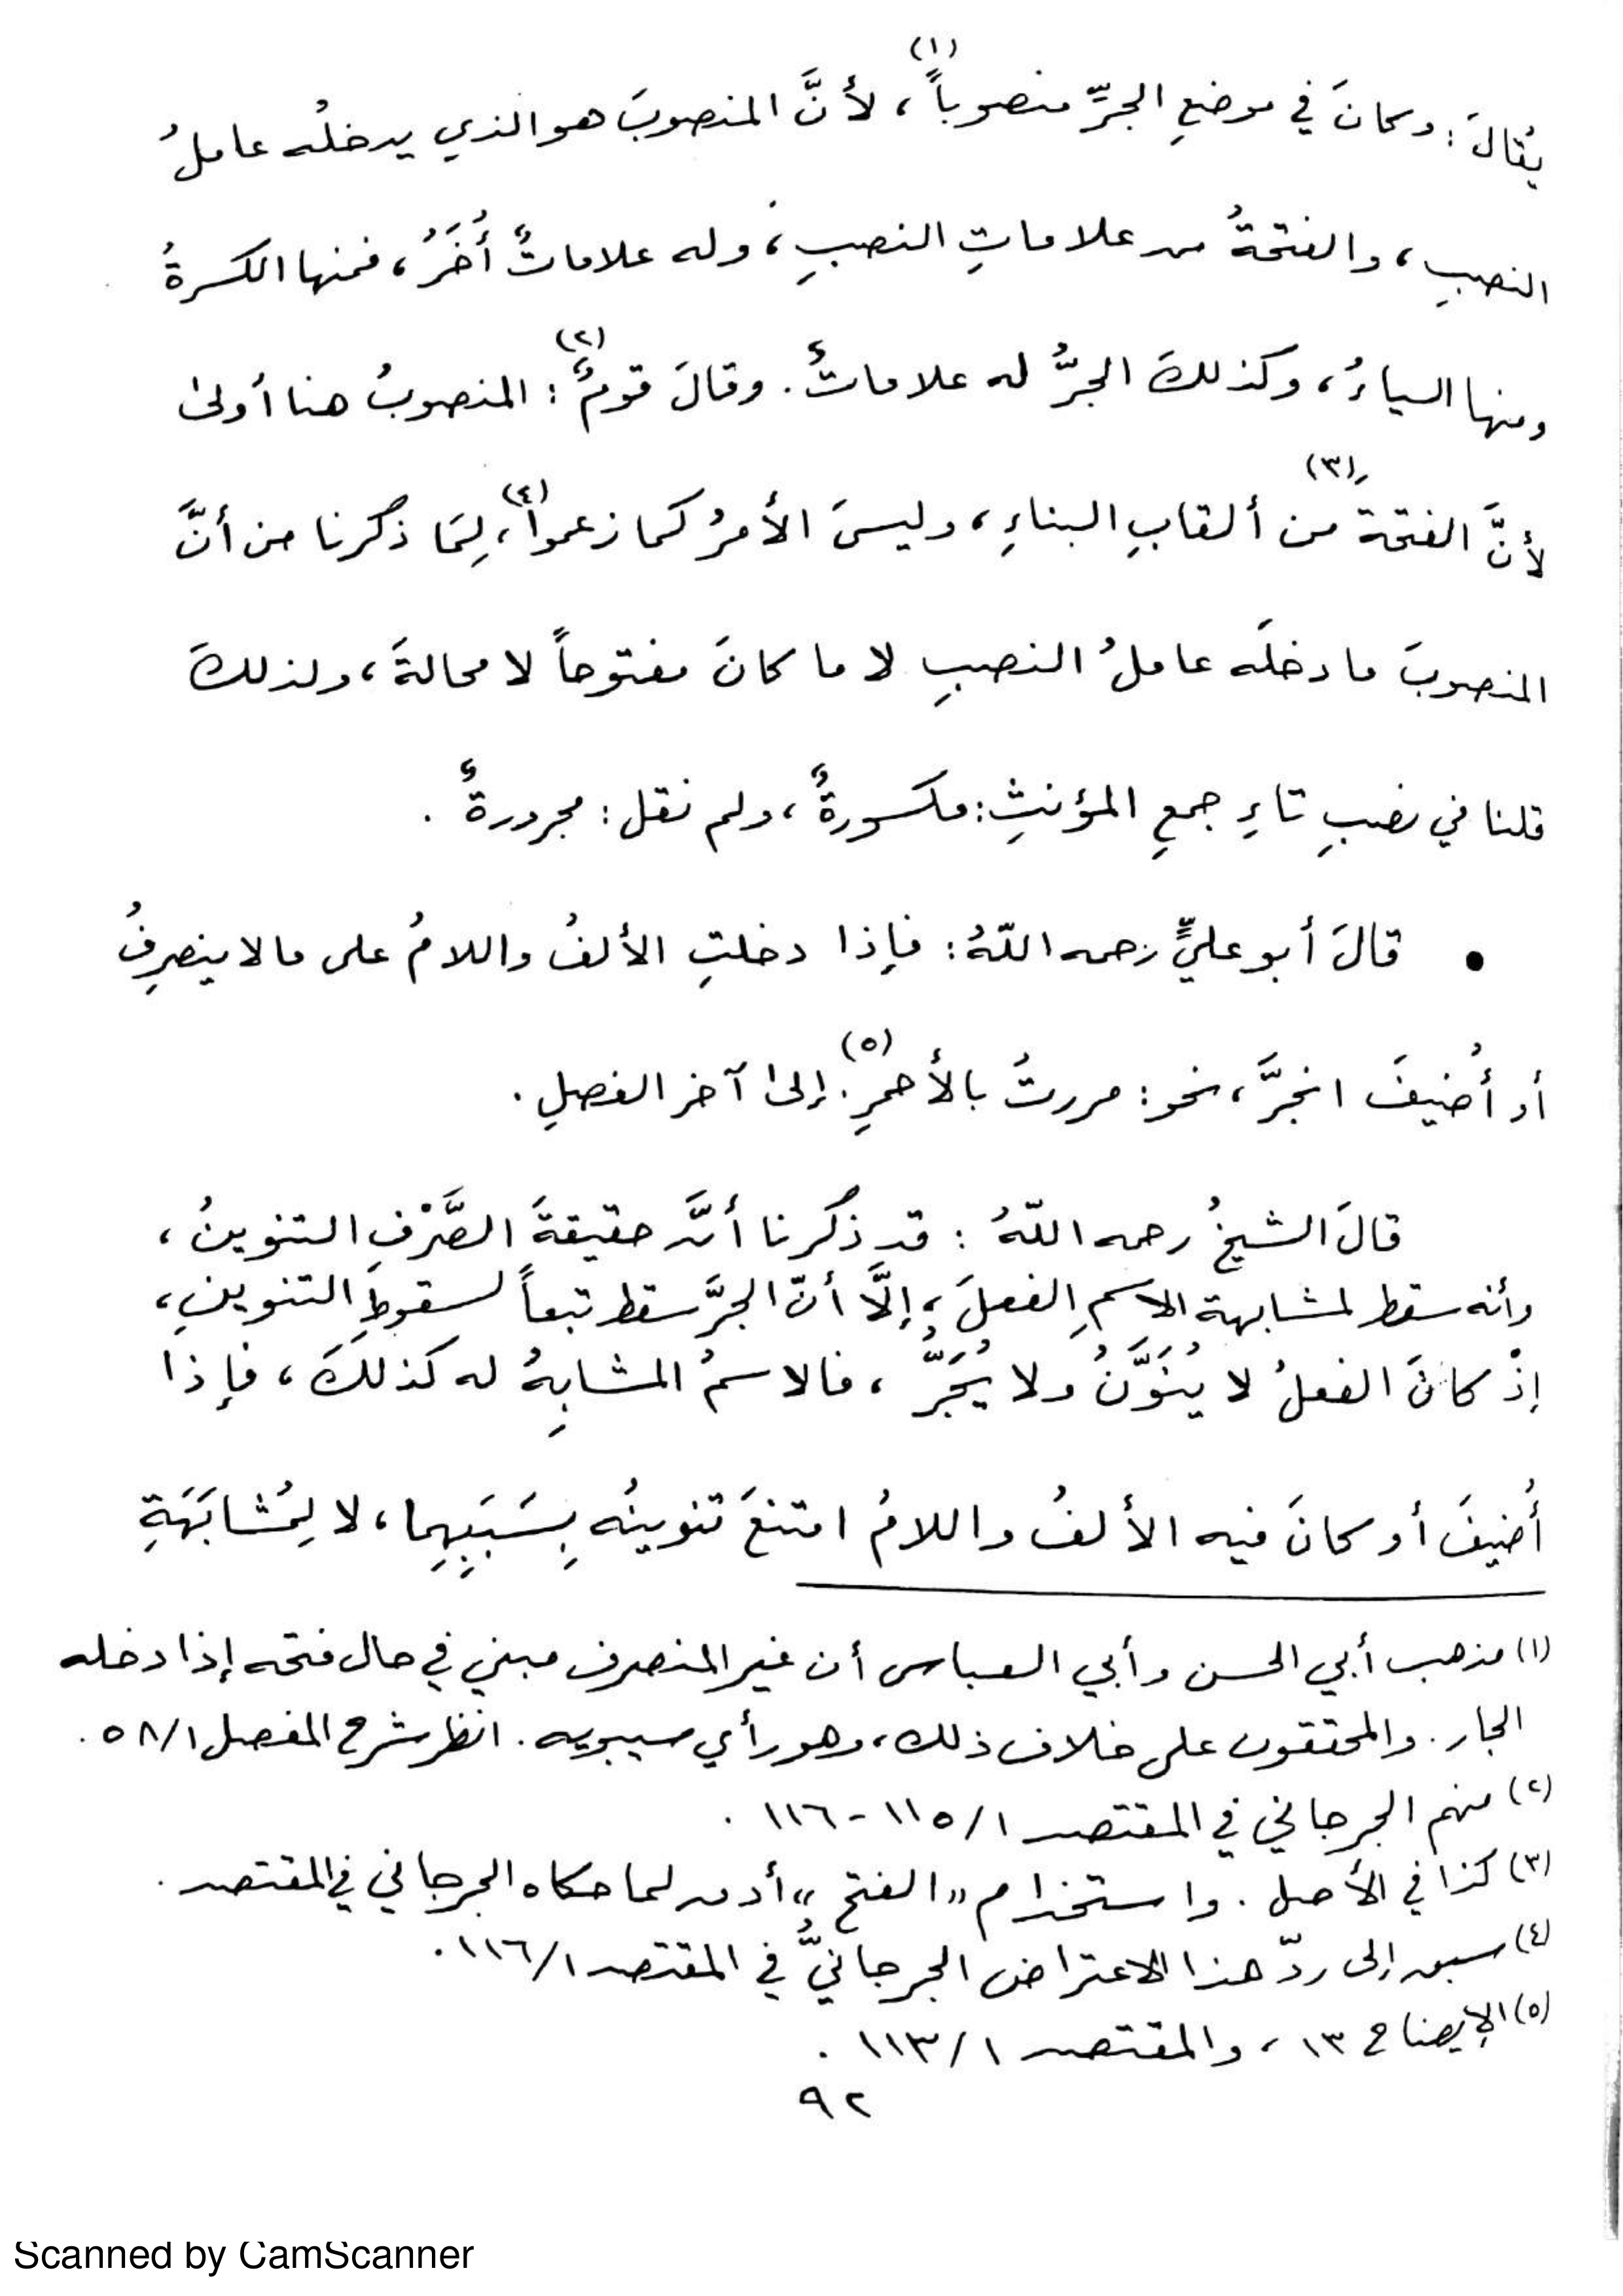 يُقالَ: وكانَ في موضعِ الجرِّ منصوباً(١)، لأنَّ المنصوبَ هو الذي يدخلُه عاملُ
النصبِ، والفتحةُ من علاماتِ النصبِ، وله علاماتٌ أُخَرُ، فمنها الكسرةُ
ومنها الياءُ، وكذلكَ الجرُّ له علاماتٌ. وقالَ قومٌ(٢): المنصوبُ هنا أولىٰ
لأنَّ الفتحة(٣) من ألقابِ البناءِ، وليسَ الأمرُ كما زعموا(٤)، لِمَا ذكرنا من أنَّ
المنصوبَ ما دخلَه عاملُ النصبِ لا ما كانَ مفتوحاً لا محالةَ، ولذلكَ
قلنا في نصبِ تاءِ جمعِ المؤنثِ: مكسورةٌ، ولم نقل: مجرورةٌ.
• قالَ أبو عليٍّ رحمه اللّهُ: فإذا دخلتِ الألفُ واللامُ على ما لا ينصرفُ
أو أُضيفَ انجرَّ، نحو: مررتُ بالأحمرِ(٥). إلىٰ آخر الفصلِ.
قالَ الشيخُ رحمه اللّهُ: قد ذكرنا أنَّ حقيقةَ الصَّرْفِ التنوينُ،
وأنه سقط لمشابهة الاسمِ الفعلَ، إلَّا أنّ الجرَّ سقط تبعاً لسقوطِ التنوينِ،
إذْ كانَ الفعلُ لا يُنَوَّنُ ولا يُجَرُّ، فالاسمُ المشابِهُ له كذلكَ، فإذا
أُضيفَ أو كانَ فيه الألفُ واللامُ امتنعَ تنوينُه بِسَبَبِهِما، لا لِمُشابَهَةِ
(١) مذهب أبي الحسن وأبي العباس أن غير المنصرف مبني في حال فتحه إذا دخله
الجار. والمحققون على خلاف ذلك، وهو رأي سيبويه. انظر شرح المفصل ١/٥٨.
(٢) منهم الجرجاني في المقتصد ١/١١٥-١١٦.
(٣) كذا في الأصل. واستخدام «الفتح» أدق لما حكاه الجرجاني في المقتصد.
(٤) سبق إلى ردّ هذا الاعتراض الجرجانيُّ في المقتصد ١/١١٦.
(٥) الإيضاح ١٣، والمقتصد ١/١١٣.
٩٢
Scanned by CamScanner